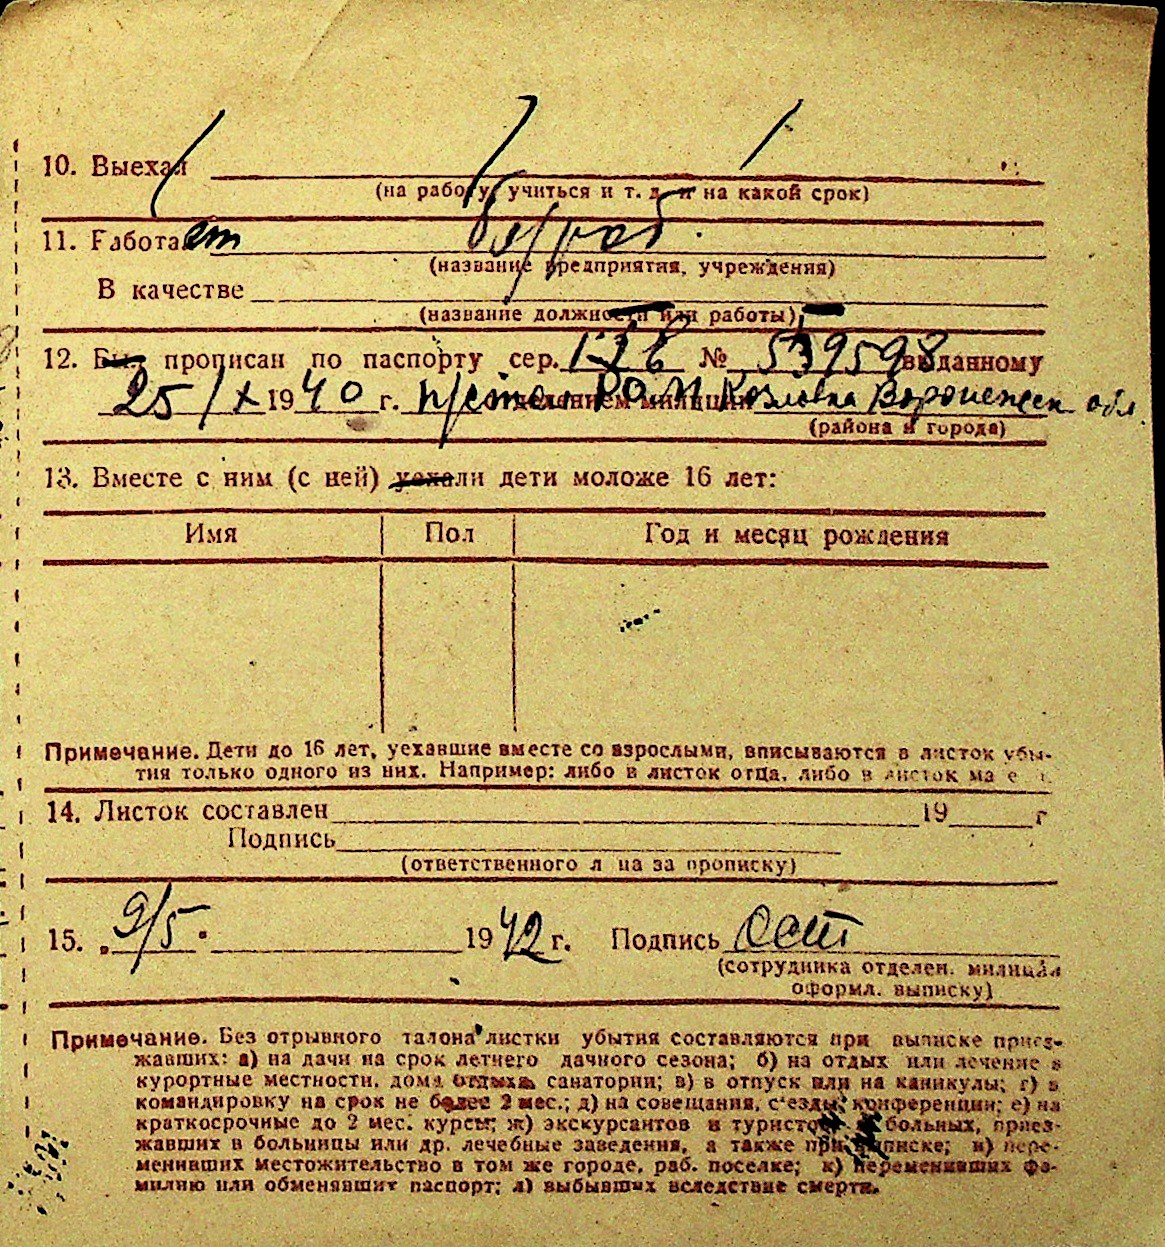 10. Выехал
(на работу, учиться и т. д. и на какой срок)
11. Работает б/раб.
(название предприятия, учреждения)
В качестве
(название должности или работы)
12. Был прописан по паспорту сер. № 539598 выданному
25/X 1940 г. п/стол РОМ отделением милиции Козловка Воронежск обл
(района и города)
13. Вместе с ним (с ней) уехали дети моложе 16 лет:
Имя Пол Год и месяц рождения
Примечание. Дети до 16 лет, уехавшие вместе со взрослыми, вписываются в листок убы-
тия только одного из них. Например: либо в листок отца, либо в листок ма е и.
14. Листок составлен 19 г
Подпись
(ответственного л ца за прописку)
15. „9/5" 1942 г. Подпись
(сотрудника отделен. милиции
оформл. выписку)
Примечание. Без отрывного талона листки убытия составляются при выписке приез-
жавших: а) на дачи на срок летнего дачного сезона; б) на отдых или лечение в
курортные местности, дома отдыха, санатории; в) в отпуск или на каникулы; г) в
командировку на срок не более 2 мес.; д) на совещания, с'езды, конференции; е) на
краткосрочные до 2 мес. курсы; ж) экскурсантов и туристов; больных, приез-
жавших в больницы или др. лечебные заведения, а также при выписке; и) пере-
менивших местожительство в том же городе, раб. поселке; к) переменивших фа-
милию или обменявших паспорт; л) выбывших вследствие смерти.